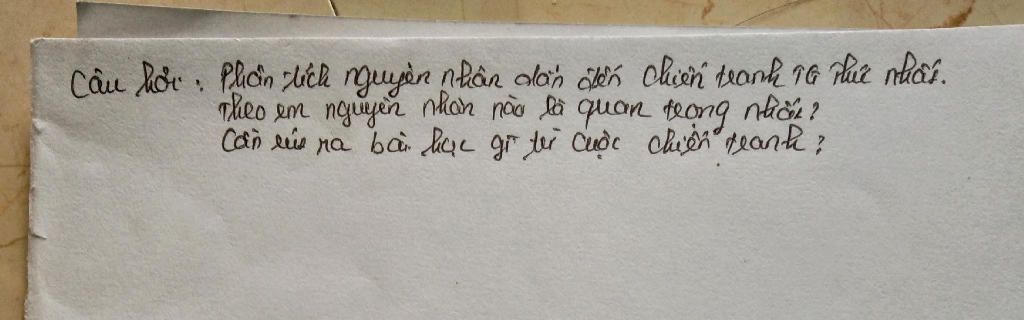 Câu hỏi : Phân tích nguyên nhân dẫn đến chiến tranh TG thứ nhất.
Theo em nguyên nhân nào là quan trọng nhất?
Cần rút ra bài học gì từ cuộc chiến tranh?